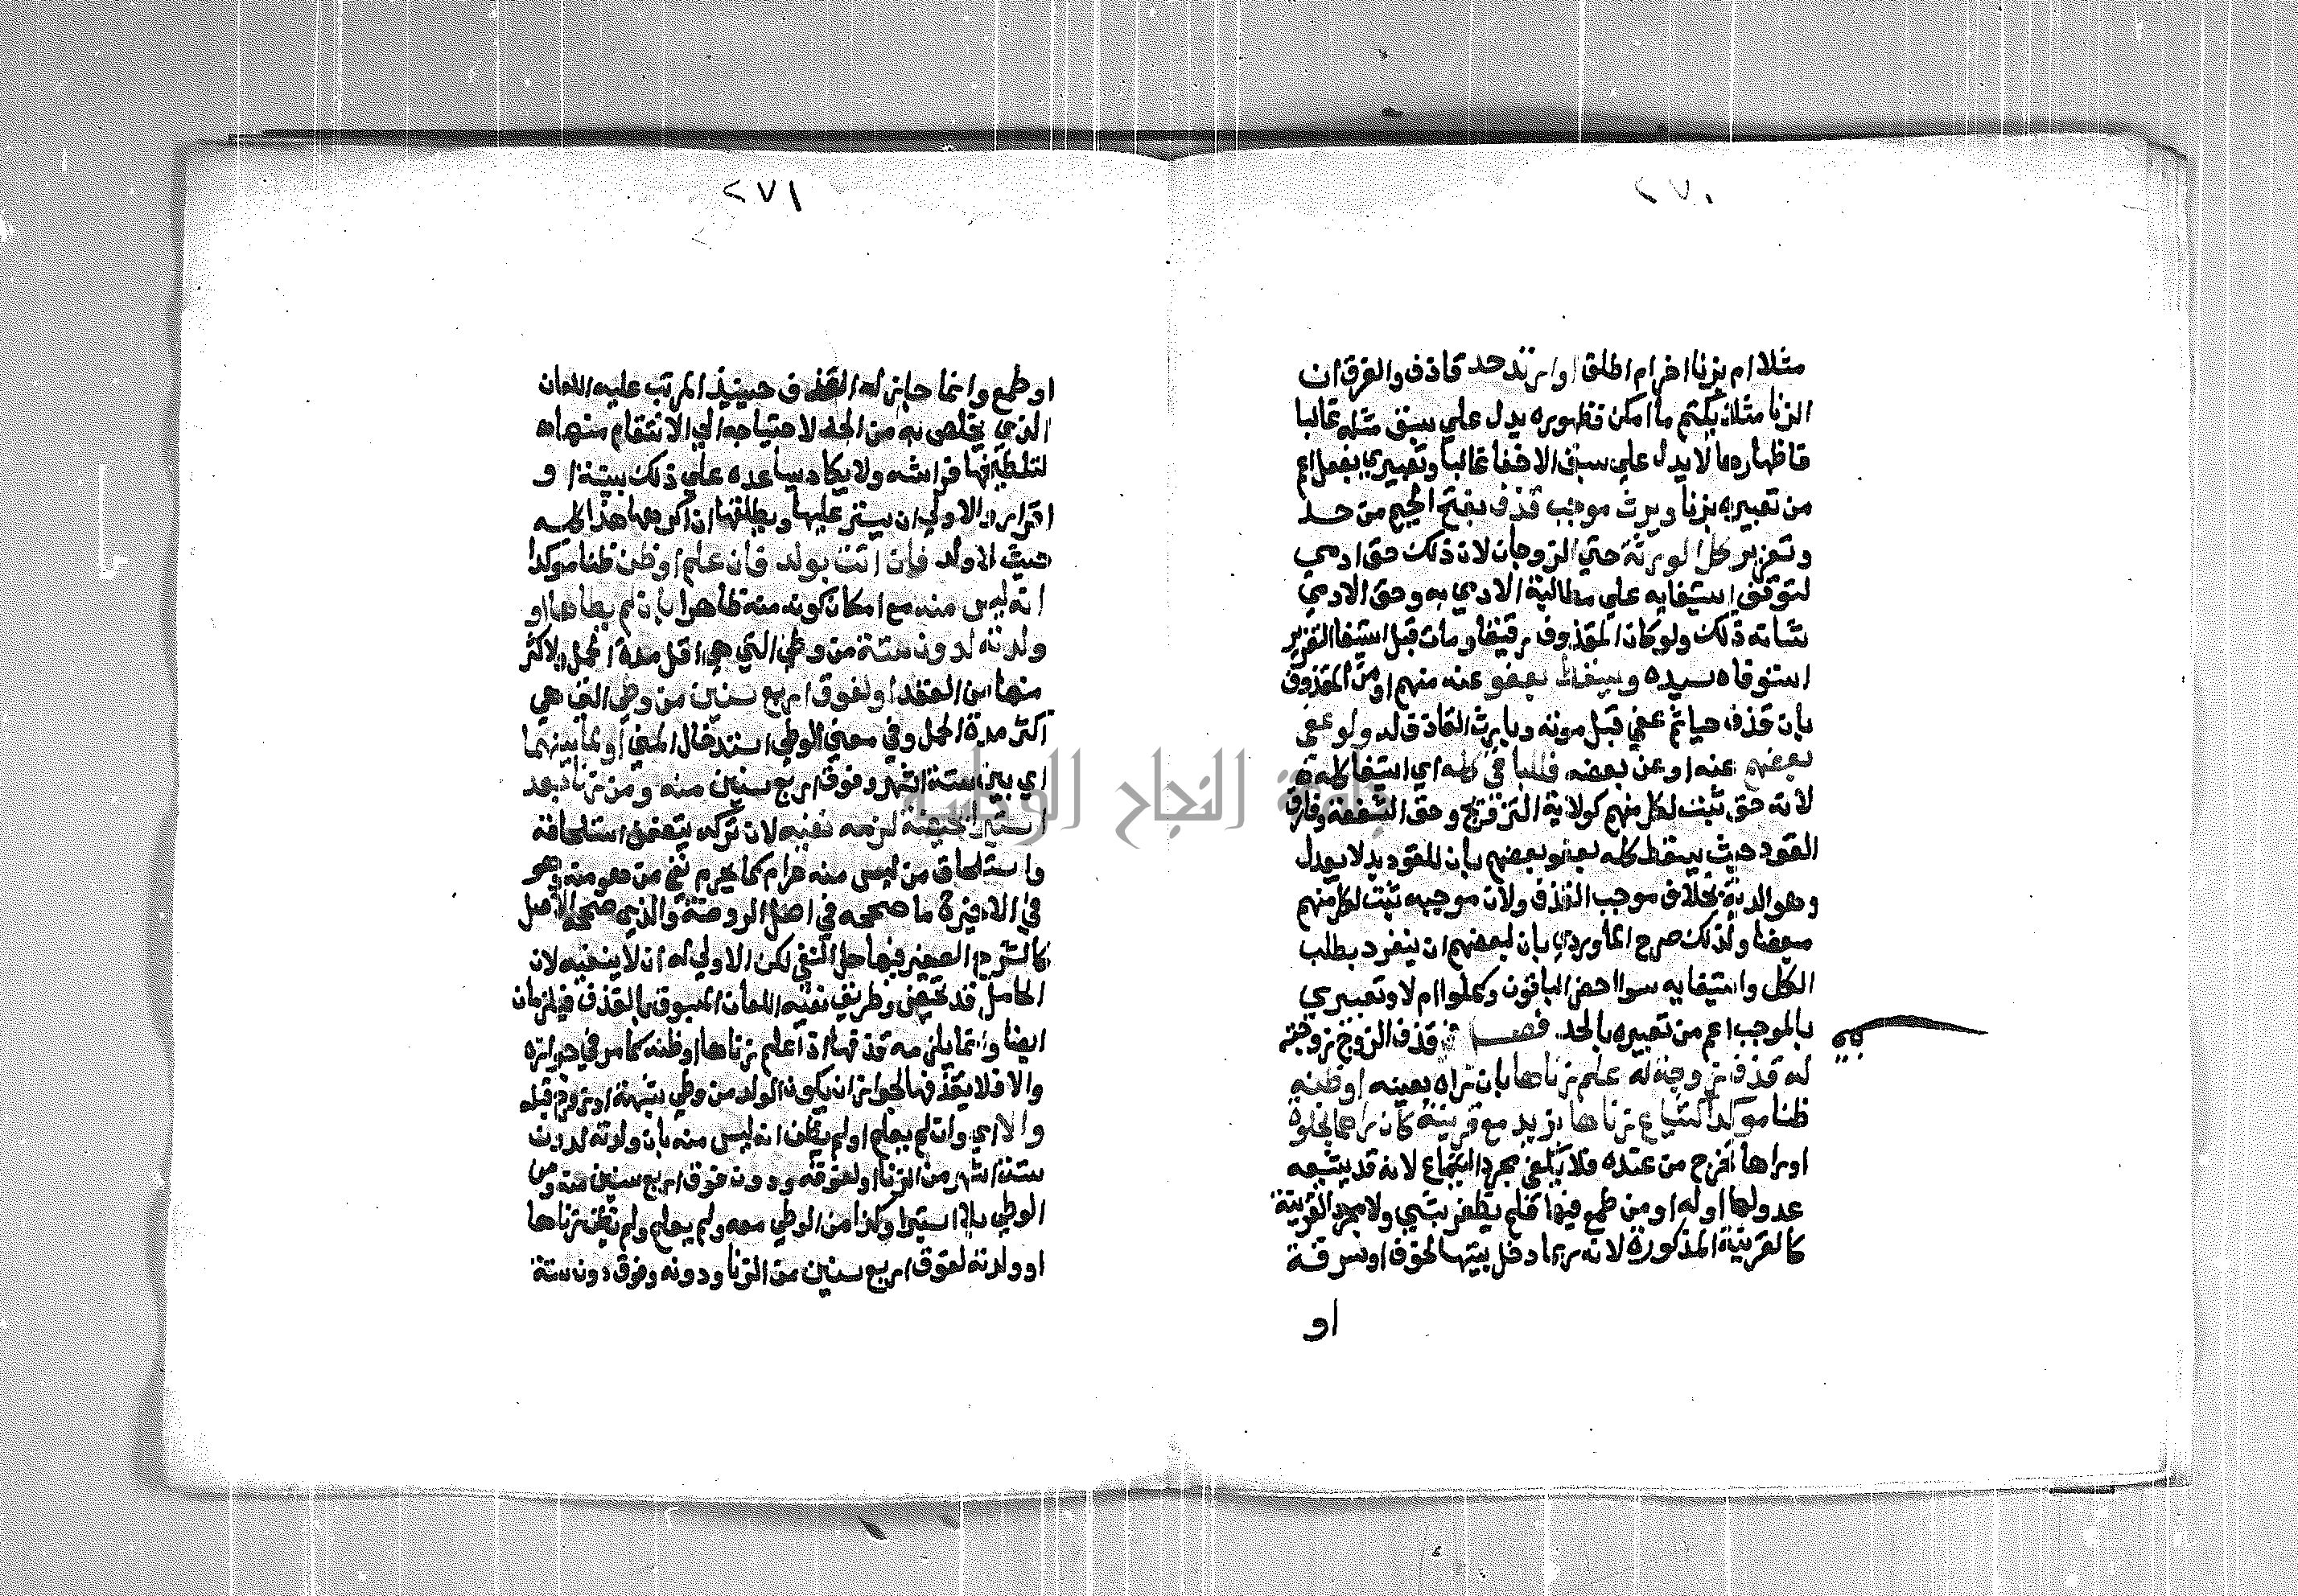 ٢٧٠
مثلا ام بزنا اخر ام اطلق او ارتد حد قاذف والفرق ان
الزنا مثلا يكتم ما امكن فظهوره يدل علي سبق مثله غالبا
فاظهارها لا يدل علي سبق الاخفا غالبا وتعبيري بفعل اعم
من تعبيره بزنا ويرث موجب قذف بفتح الجيم من حد
وتعزير كل الورثة حتي الزوجان لان ذلك حق ادمي
لتوقف استيفايه علي مطالبة الادمي به وحق الادمي
شانه ذلك ولو كان المقذوف رقيقا ومات قبل استيفا التعزير
استوفاه سيده ويسقط بعفو عنه منهم او من المقذوف
بان قذف حيا ثم عفي قبل موته وبارث القاذف له ولو عفي
بعضهم عنه او عن بعضه فللباقي كله اي استيفا كله
لانه حق ثبت لكل منهم كولاية التزويج وحق الشفعة وفارق
القود حيث يسقط كله بعفو بعضهم بان للقود بدلا يعدل
وهو الدية بخلاف موجب القذف ولان موجبه ثبت لكل منهم
بعضا ولذلك صرح الماوردي بان لبعضهم ان ينفرد بطلب
الكل واستيفايه سوا احضر الباقون وكملوا ام لا وتعبيري
بالموجب اعم من تعبيره بالحد فصل في قذف الزوج زوجته
له قذف زوجة له علم زناها بان راه بعينه او ظنه
ظنا موكدا كشياع زناها بزيد مع قرينة كان راهما بخلوة
او راها تخرج من عنده فلا يكفي مجرد الشياع لانه قد يشيعه
عدو لها او له او من طمع فيها فلم يظفر بشي ولا مجرد القرينة
كالقرينة المذكورة لانه ربما دخل بيتها لخوف او سرقة
او
٢٧١
او طمع وانما جاز له القذف حينيذ المرتب عليه اللعان
الذي يخلص به من الحد لاحتياجه الي الانتقام منها
لتلطيخها فراشه ولا يكاد يساعده علي ذلك بينة او
اقرار والاولي ان يستر عليها ويطلقها ان كرهها هذا كله
حيث لا ولد فان اتت بولد فان علم او ظن ظنا موكدا
انه ليس منه مع امكان كونه منه ظاهرا بان لم يطاها او
ولدته لدون ستة من وطي التي هي اقل مدة الحمل ولاكثر
منها من العقد او لفوق اربع سنين من وطي التي هي
اكثر مدة الحمل وفي معني الوطي استدخال المني او لما بينهما
اي بين ستة اشهر وفوق اربع سنين منه ومن زنا بعد
استبرا بحيضة لزمه نفيه لان تركه يتضمن استلحاقه
واستلحاق من ليس منه حرام كما يحرم نفي من هو منه وهو
في الاخيرة ما صححه في اصل الروضة والذي صححه الاصل
كالشرح الصغير فيها حل النفي لكن الاولي له ان لا ينفيه لان
الحامل قد تحيض وطريق نفيه اللعان المسبوق بالقذف فيلزمان
ايضا وانما يلزمه قذفها اذا علم زناها او ظنه كما مر في جوازه
والا فلا يقذفها لجواز ان يكون الولد من وطي شبهة او زوج قبله
والا اي وان لم يعلم او لم يظن انه ليس منه بان ولدته لدون
ستة اشهر من الزنا او لفوقه ودون فوق اربع سنين منه ومن
الوطي بلا استبرا وكذا من الوطي معه ولم يعلم ولم يظن زناها
او ولدته لفوق اربع سنين من الزنا ودونه وفوق دون ستة
جامعة النجاح الوطنية